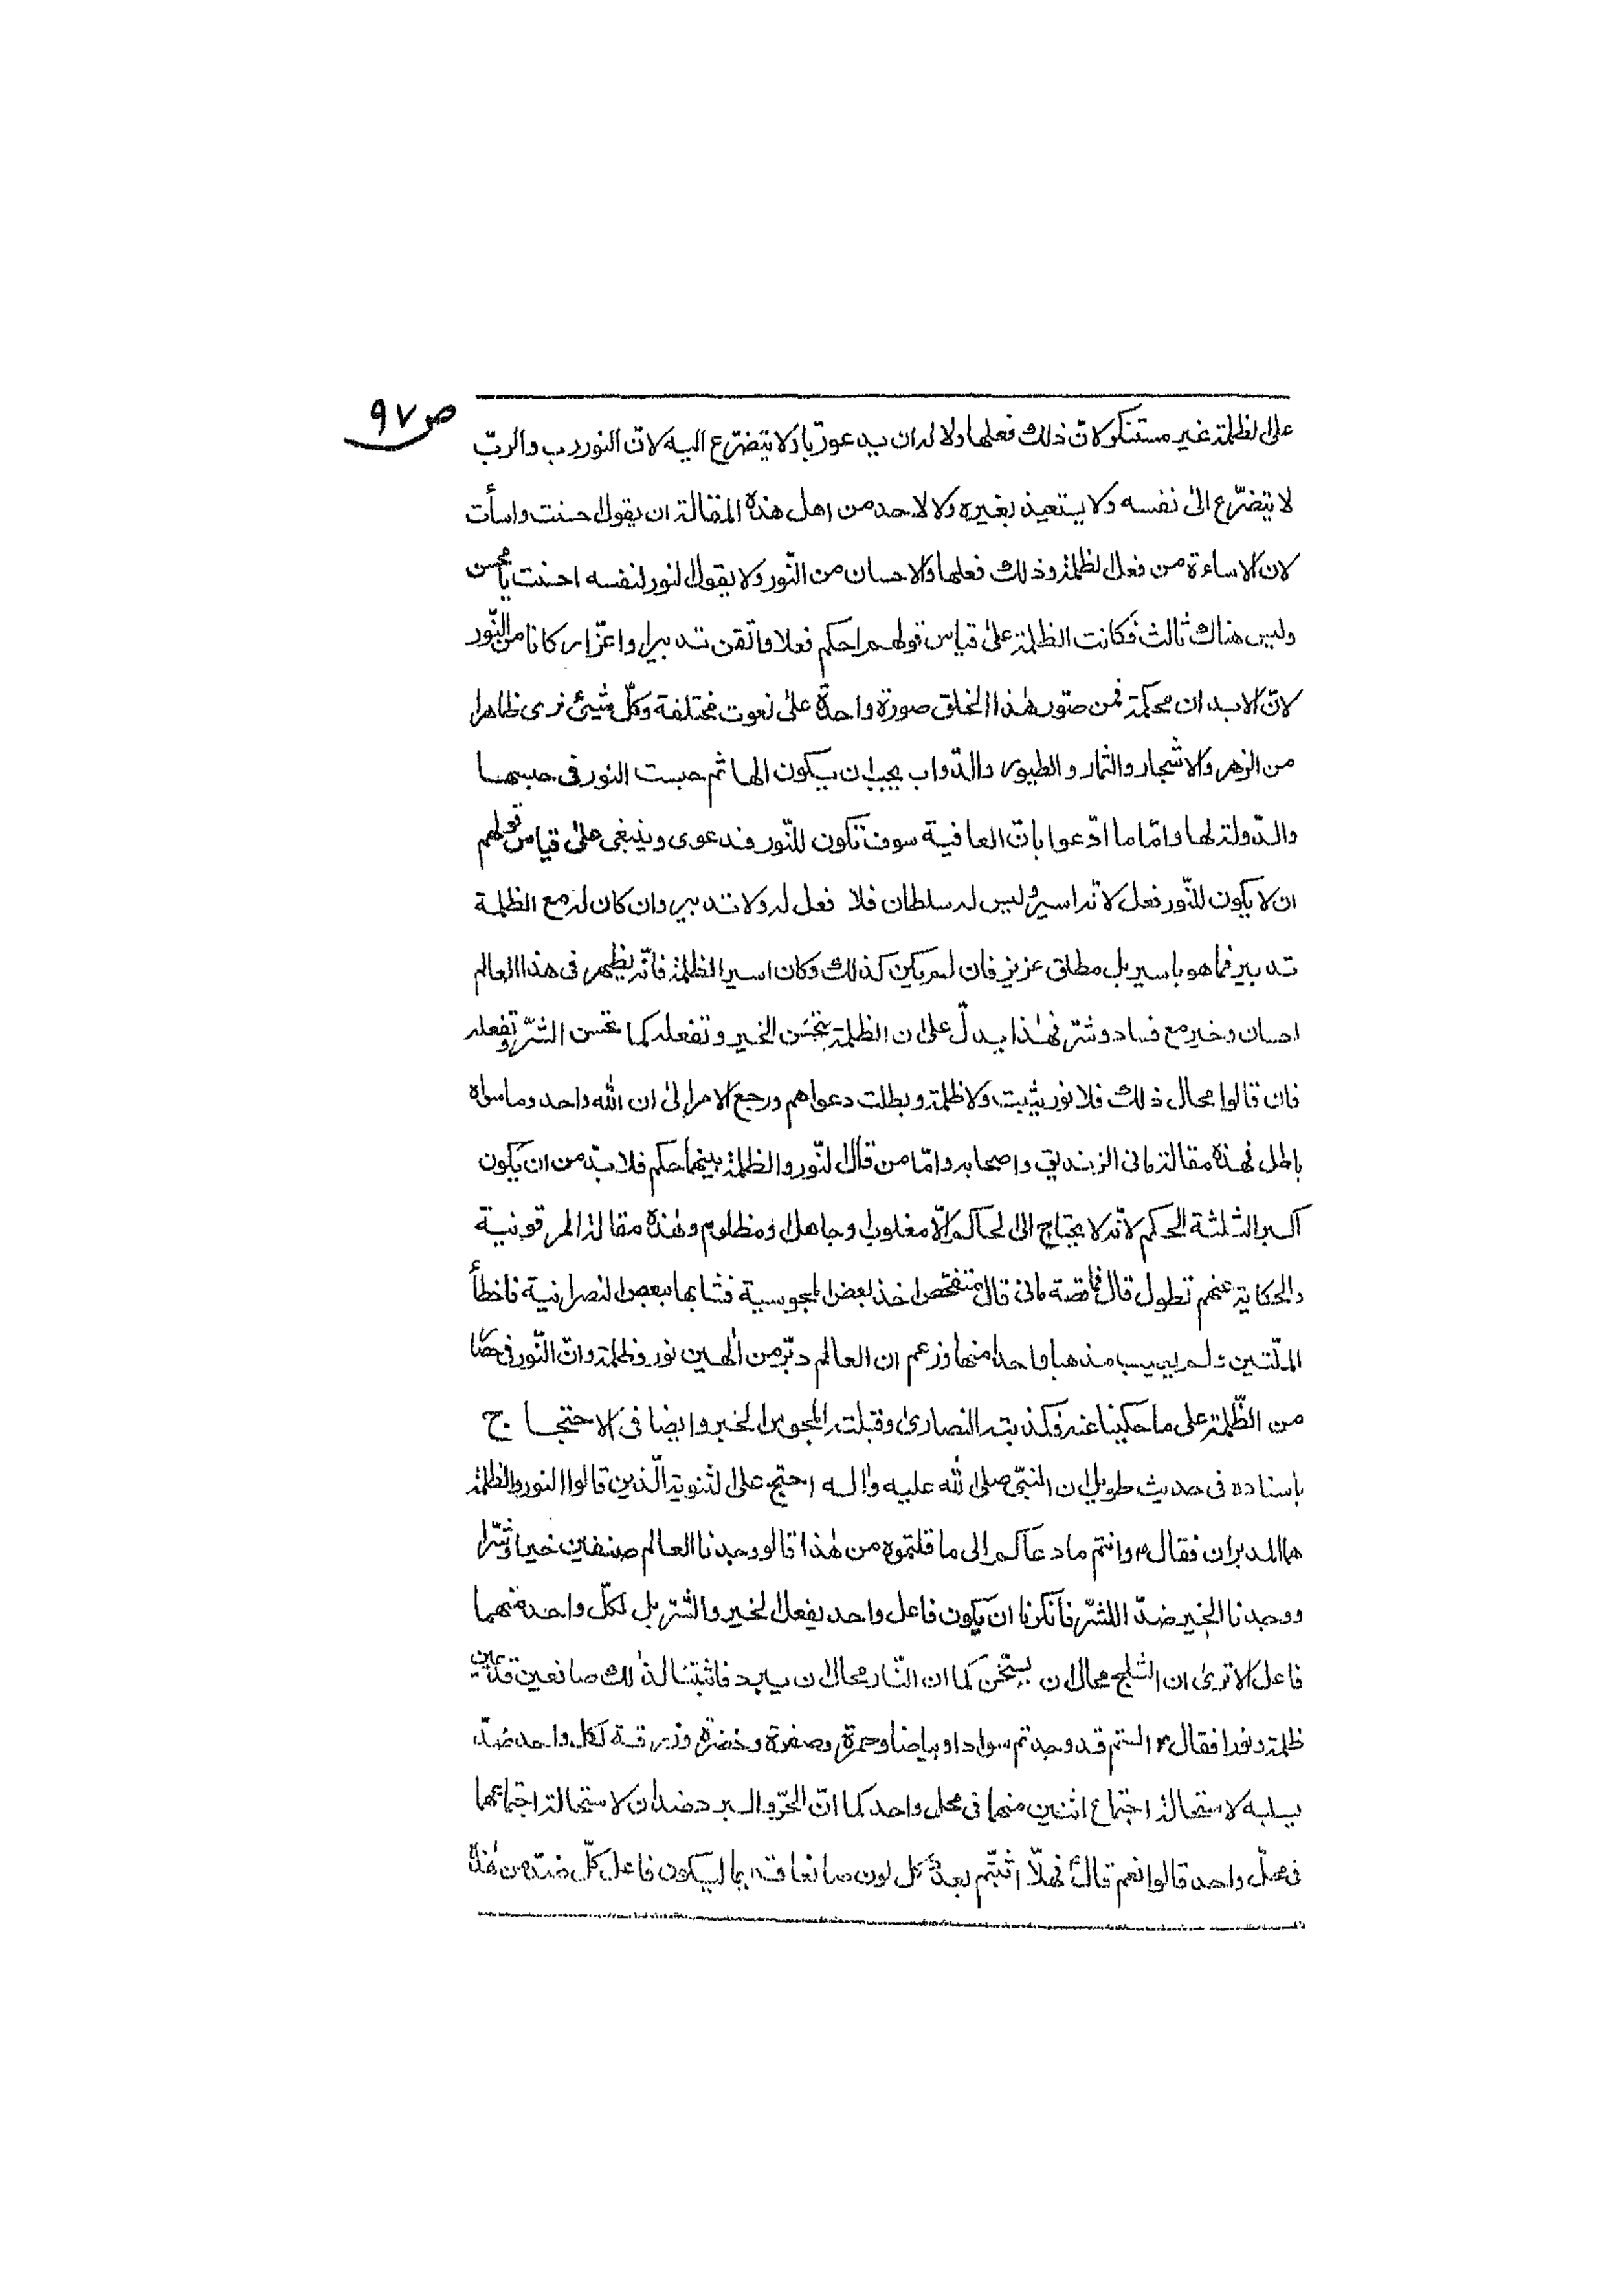 ص ٩٧
على الظلمة غير مستنكر لانّ ذلك فعلها ولا له ان يدعو ربّا ولا يتضرّع اليه لانّ النور رب والربّ
لا يتضرّع الى نفسه ولا يستعيذ بغيره ولا لاحد من اهل هذه المقالة ان يقول احسنت واسأت
لان الاساءة من فعل الظلمة وذلك فعلها والاحسان من النّور ولا يقول النور لنفسه احسنت يا محسن
وليس هناك ثالث فكانت الظلمة على قياس قولهم احكم فعلا واتقن تدبيرا واعزّ اركانا من النّور
لانّ الابدان محكمة فمن صوّر هٰذا الخلق صورة واحدة على نعوت مختلفة وكلّ شيئ نرى ظاهرا
من الزهر والاشجار والثمار والطيور والدّواب يجب ان يكون الها ثم حبست النور في حبسها
والدّولة لها وامّا ما ادّعوا بانّ العافية سوف تكون للنّور فدعوى وينبغى على قياس قولهم
ان لا يكون للنّور فعل لانّه اسير وليس له سلطان فلا فعل له ولا تدبير وان كان له مع الظلمة
تدبير فما هو باسير بل مطلق عزيز فان لم يكن كذلك وكان اسير الظلمة فانّه يظهر فى هذا العالم
احسان وخير مع فساد وشرّ فهٰذا يدلّ على ان الظلمة تحسّن الخير وتفعله كما تحسن الشرّ وتفعله
فان قالوا محال ذلك فلا نور يثبت ولا ظلمة وبطلت دعواهم ورجع الامر الى ان الله واحد وما سواه
باطل فهذه مقالة مانى الزنديق واصحابه وامّا من قال النّور والظلمة بينهما حكم فلا بدّ من ان يكون
اكبر الثلثة الحكم لانّه لا يحتاج الى الحاكم الّا مغلوب او جاهل او مظلوم وهٰذه مقالة المرقونية
والحكاية عنهم تطول قال فما قصة مانى قال متفحّص اخذ بعض المجوسية فشابها ببعض النصرانية فاخطأ
الملّتين ولم يصب مذهبا واحدا منهما وزعم ان العالم دبّر من الٰهين نور وظلمة وانّ النّور فى حصار
من الظّلمة على ما حكينا عنه فكذبته النصارى وقبلته المجوس الخبر وايضا فى الاحتجاج
باسناده فى حديث طويل ان النبىّ صلى الله عليه واٰله احتج على الثنوية الّذين قالوا النور والظلمة
هما المدبران فقال ص وانتم ما دعاكم الى ما قلتموه من هٰذا قالو وجدنا العالم صنفين خيرا وشرّا
ووجدنا الخير ضدّ اللشرّ فانكرنا ان يكون فاعل واحد يفعل الخير والشرّ بل لكلّ واحد منهما
فاعل الا ترى ان الثلج محال ان يسخّن كما ان النّار محال ان يبرد فاثبتنا لذٰلك صانعين قديمين
ظلمة ونورا فقال ص الستم قد وجدتم سوادا وبياضا وحمرة وصفرة وخضرة وزرقة لكل واحد ضدّ
يسلبه لاستحالة اجتماع اثنين منهما فى محل واحد كما انّ الحرّ والبرد ضدان لاستحالة اجتماعهما
فى محلّ واحد قالوا نعم قال ص فهلّا اثبتّم بعدد كل لون صانعا قديما ليكون فاعل كلّ ضدّ من هٰذه